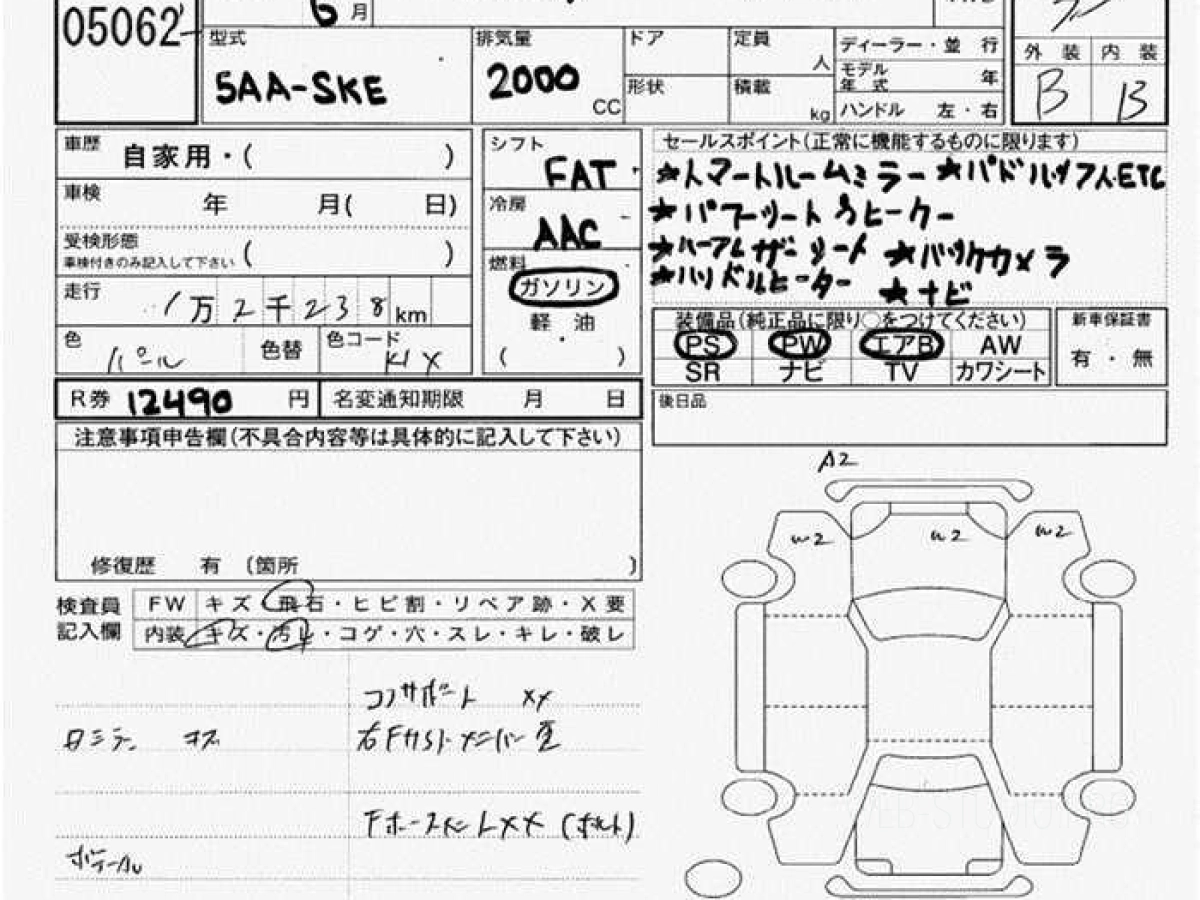 05062
6月
型式
5AA-SKE
排気量
2000
CC
ドア
形状
定員
人
積載
kg
ディーラー・並 行
モデル年式
年
ハンドル 左・右
外 装 内 装
B B
車歴
自家用・( )
車検
年 月( 日)
受検形態
車検付きのみ記入して下さい ( )
走行
1万2千238km
色
パール
色替
色コード
シフト
FAT
冷房
AAC
燃料
ガソリン
軽 油
( )
セールスポイント(正常に機能するものに限ります)
★スマートルームミラー ★パドルシフト ETC
★パワーシート
★ハーフレザーシート ★バックカメラ
★ハンドルヒーター ★ナビ
装備品(純正品に限り○をつけてください)
PS PW エアB AW
SR ナビ TV カワシート
新車保証書
有・無
R券 12490 円
名変通知期限 月 日
後日品
注意事項申告欄(不具合内容等は具体的に記入して下さい)
修復歴 有 〔箇所 )
検査員記入欄
FW キズ・飛石・ヒビ割・リペア跡・X要
内装 キズ・汚レ・コゲ・穴・スレ・キレ・破レ
コアサポート XX
右Fサイドメンバー
(ボルト)
A2
W2
W2
W2